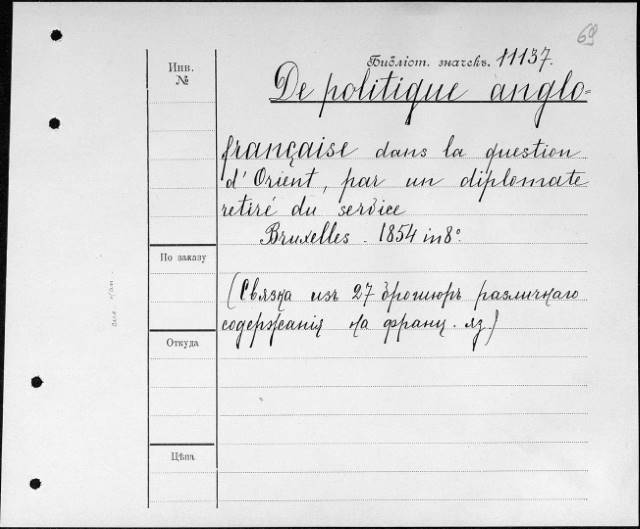 69
Библіот. значекъ. 11137.
Инв.
№
De politique anglo=
française dans la question
d'Orient, par un diplomate
retiré du service
Bruxelles. 1854 in 8°.
По заказу
(Связка изъ 27 брошюръ различнаго
содержанія на франц. яз.)
Откуда
Цѣна